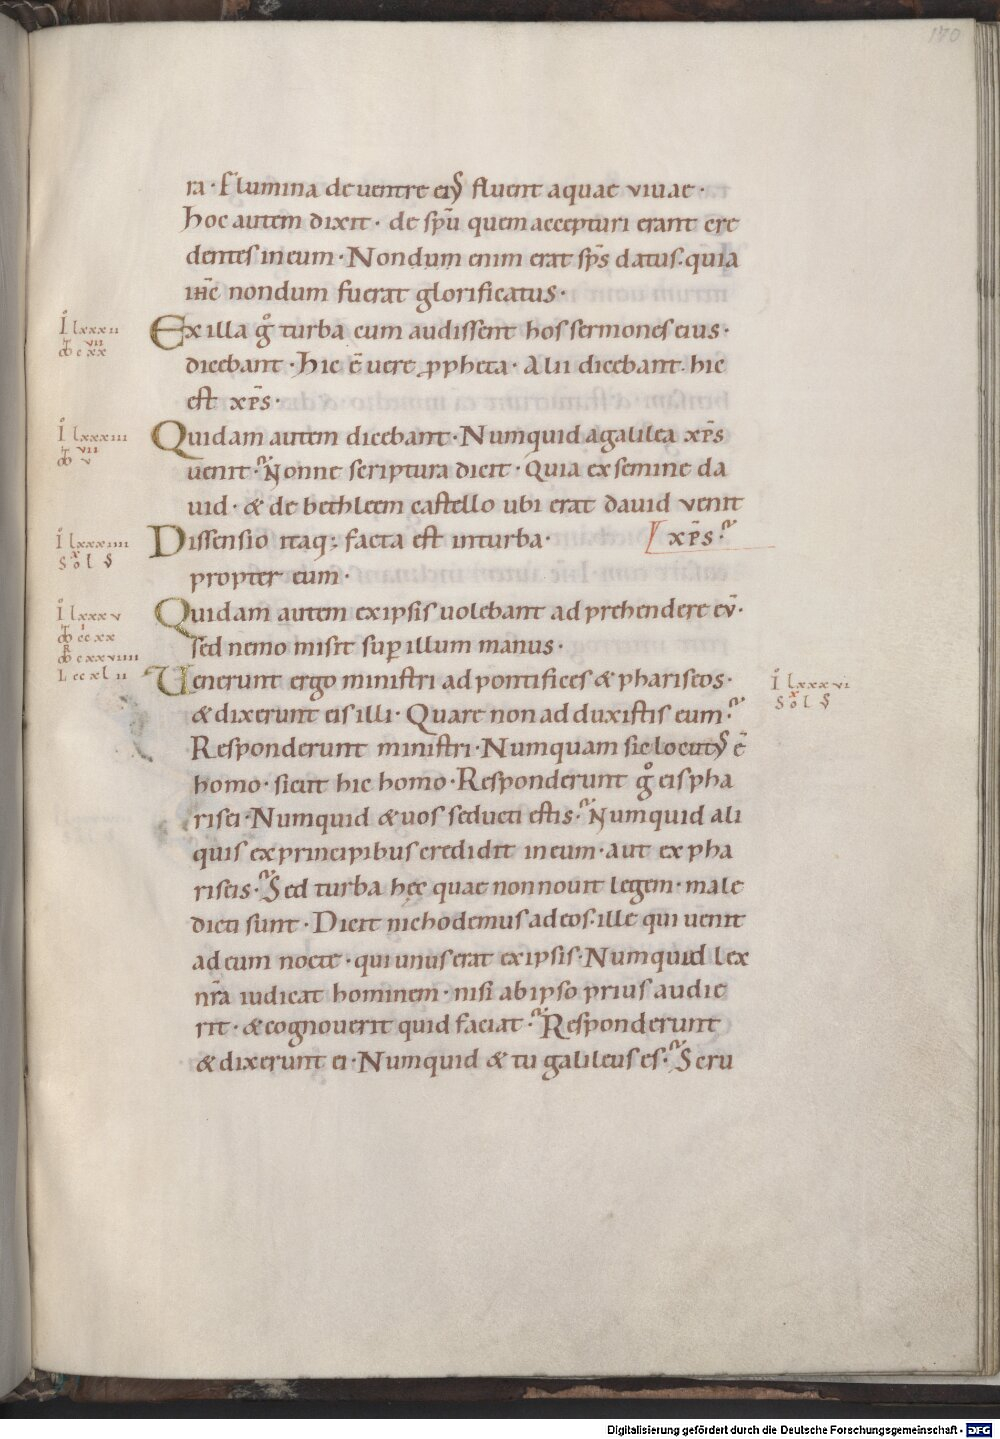 170
ra · Flumina de ventre ei᾿ fluent aquae vivae ·
hoc autem dixit · de sp̄u quem accepturi erant cre
dentes in eum · Nondum enim erat sp̄s datus · quia
ih̄c nondum fuerat glorificatus ·
I lxxxii
Ex illa g° turba cum audissent hos sermones eius ·
dicebant · hic ē vere ꝓpheta · Alii dicebant · hic
est xp̄s ·
I lxxxiii
Quidam autem dicebant · Numquid a galilea xp̄s
venit · Nonne scriptura dicit · Quia ex semine da
uid · & de bethleem castello ubi erat david venit
I lxxxiiii
Sol
Dissensio itaq; facta est in turba · [xp̄s ·
propter eum ·
I lxxxv
ccxx
cxxviiii
L ccxlii
Quidam autem ex ipsis uolebant adprehendere eū ·
sed nemo misit suꝑ illum manus ·
Venerunt ergo ministri ad pontifices & phariseos ·
I lxxxvi
Sol
& dixerunt eis illi · Quare non adduxistis eum ·
Responderunt ministri · Numquam sic locut᾿ ē
homo · sicut hic homo · Responderunt g° eis pha
risei · Numquid & uos seducti estis · Numquid ali
quis ex principibus credidit in eum · aut ex pha
riseis · Sed turba hęc quae non nouit legem · male
dicti sunt · Dicit nichodemus ad eos · ille qui venit
ad eum nocte · qui unus erat ex ipsis · Numquid lex
nr̄a iudicat hominem · nisi ab ipso prius audie
rit · & cognouerit quid faciat · Responderunt
& dixerunt ei · Numquid & tu galileus es · Scru
Digitalisierung gefördert durch die Deutsche Forschungsgemeinschaft - DFG